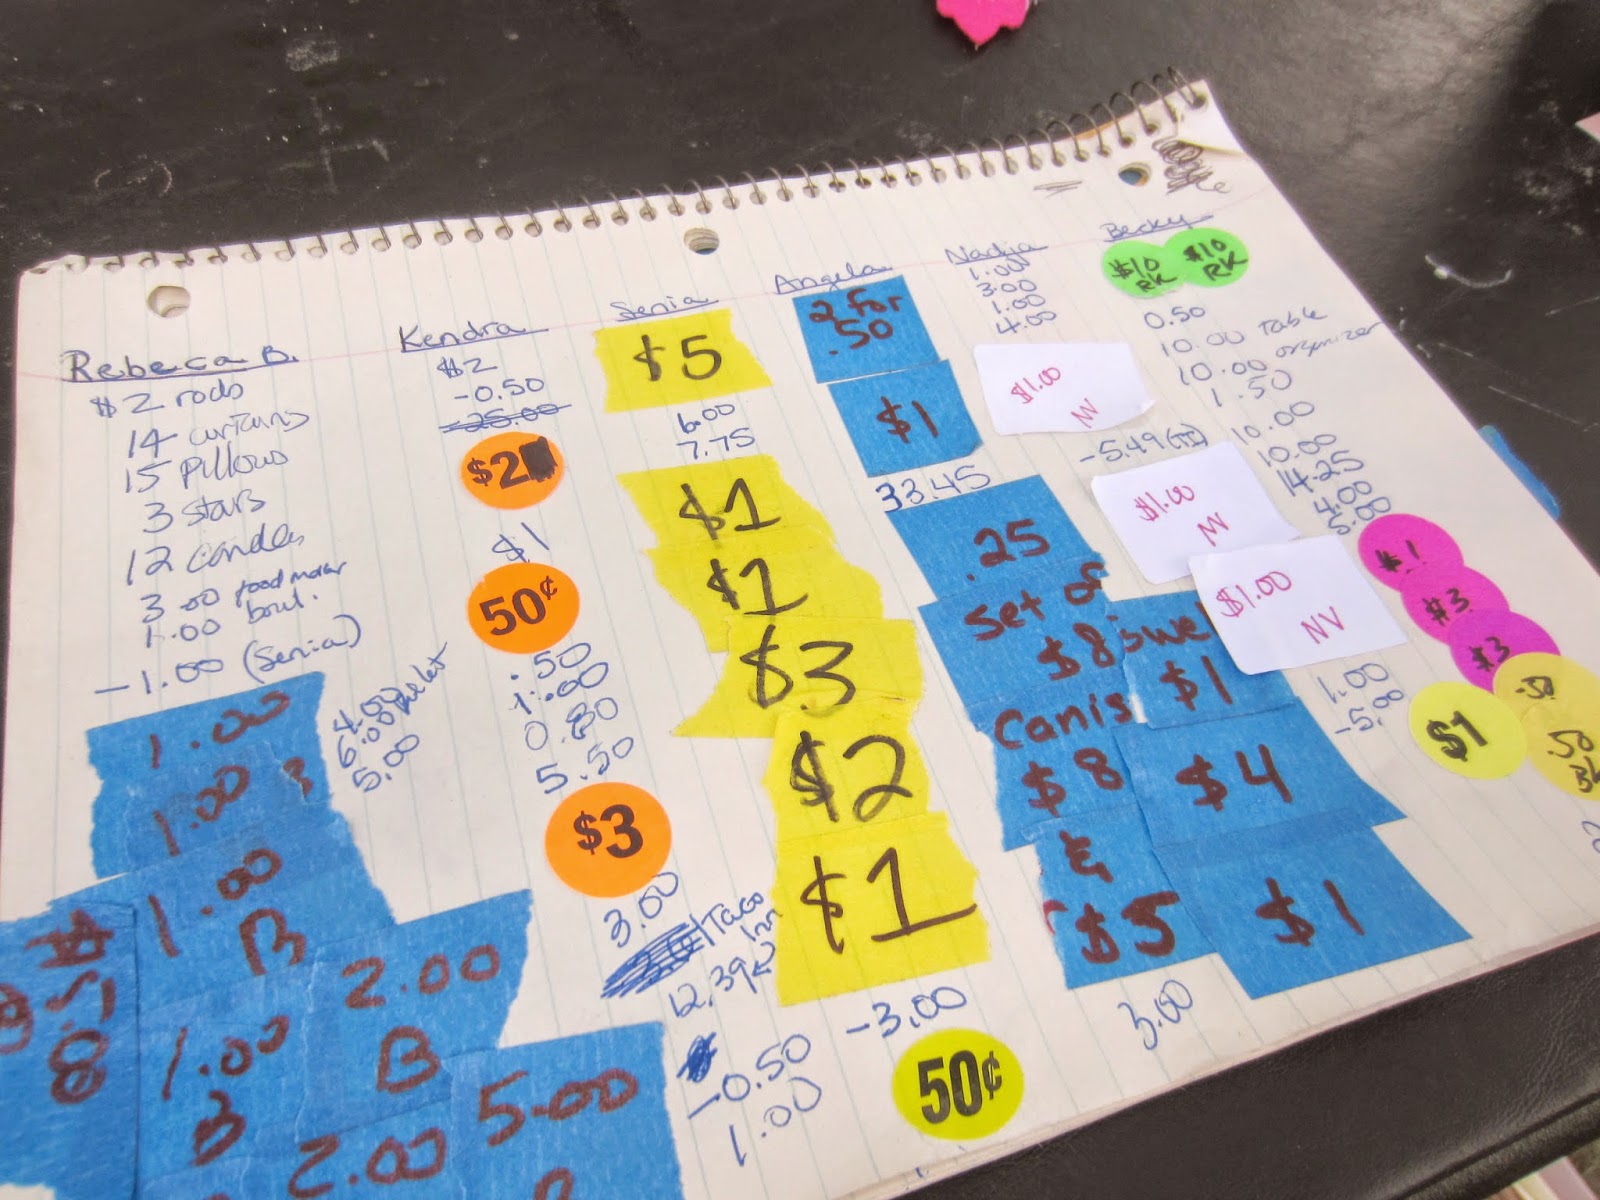 Rebeca B.
$2 rods
14 curtains
15 pillows
3 stars
12 candles
3.00 food
1.00 bowl.
-1.00 (Senia)
1.00
1.00 B
1.00
B
1.00
B
2.00
B
5.00
2.00
4.00
6.00
5.00
Kendra
$2
-0.50
-25.00
$2
$1
50¢
.50
1.00
0.80
5.50
$3
3.00
Taco
12.39
-0.50
1.00
Senia
$5
6.00
7.75
$1
$1
$3
$2
$1
-3.00
50¢
Angela
2 for
.50
$1
33.45
.25
Set of
$8
Canis
$8
&
$5
$1
$4
$1
3.00
Nadja
1.00
3.00
1.00
4.00
$1.00
NV
-5.49
$1.00
NV
$1.00
NV
Becky
$10
RK
$10
RK
0.50
10.00 Table
organizer
10.00
1.50
10.00
10.00
14.25
4.00
5.00
$1
$3
$3
1.00
-5.00
$1
.50
.50